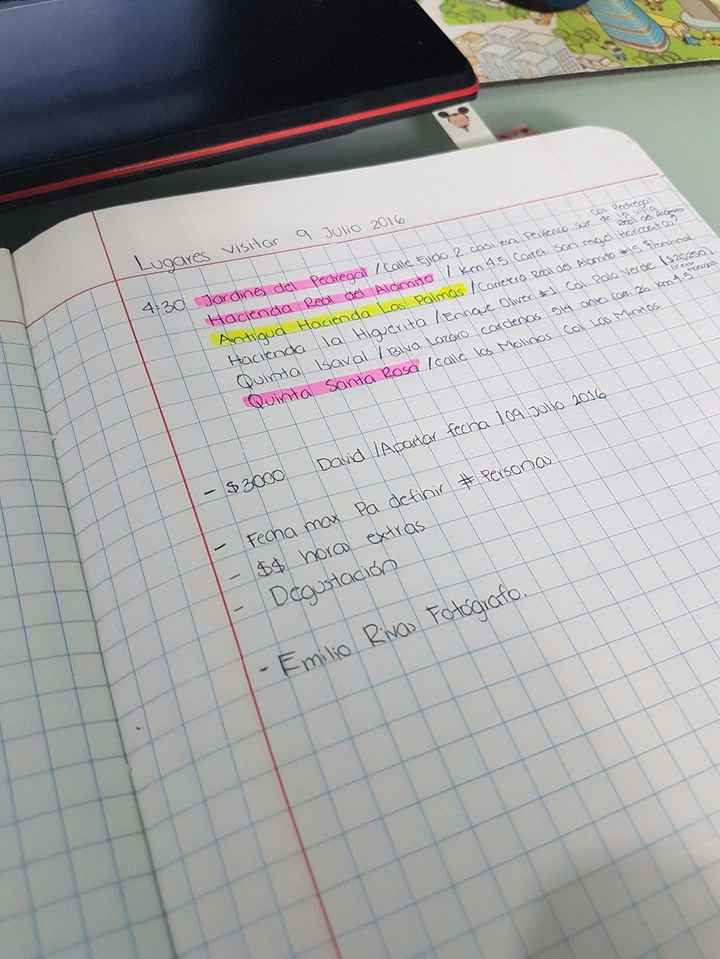 Lugares visitar 9 Julio 2016
4:30 Jardines del Pedregal / Calle Ejido 2 casi esq. Periferico Sur Col. Pedregal de la Villa
Hacienda Real del Alamito / Km 4.5 Carret. San Miguel Horcasitas
Antigua Hacienda Las Palmas / Carretera Real del Alamito #15
Hacienda la Higuerita / Enrique Oliver #1 Col. Palo Verde
Quinta Isaval / Blvd Lazaro cardenas 514 km 4.5
Quinta Santa Rosa / calle los Molinos Col Las Minitas
- $3000 David / Apartar fecha / 09 Julio 2016
- Fecha max Pa definir # Personas
- $$ horas extras
- Degustación
- Emilio Rivas Fotógrafo.